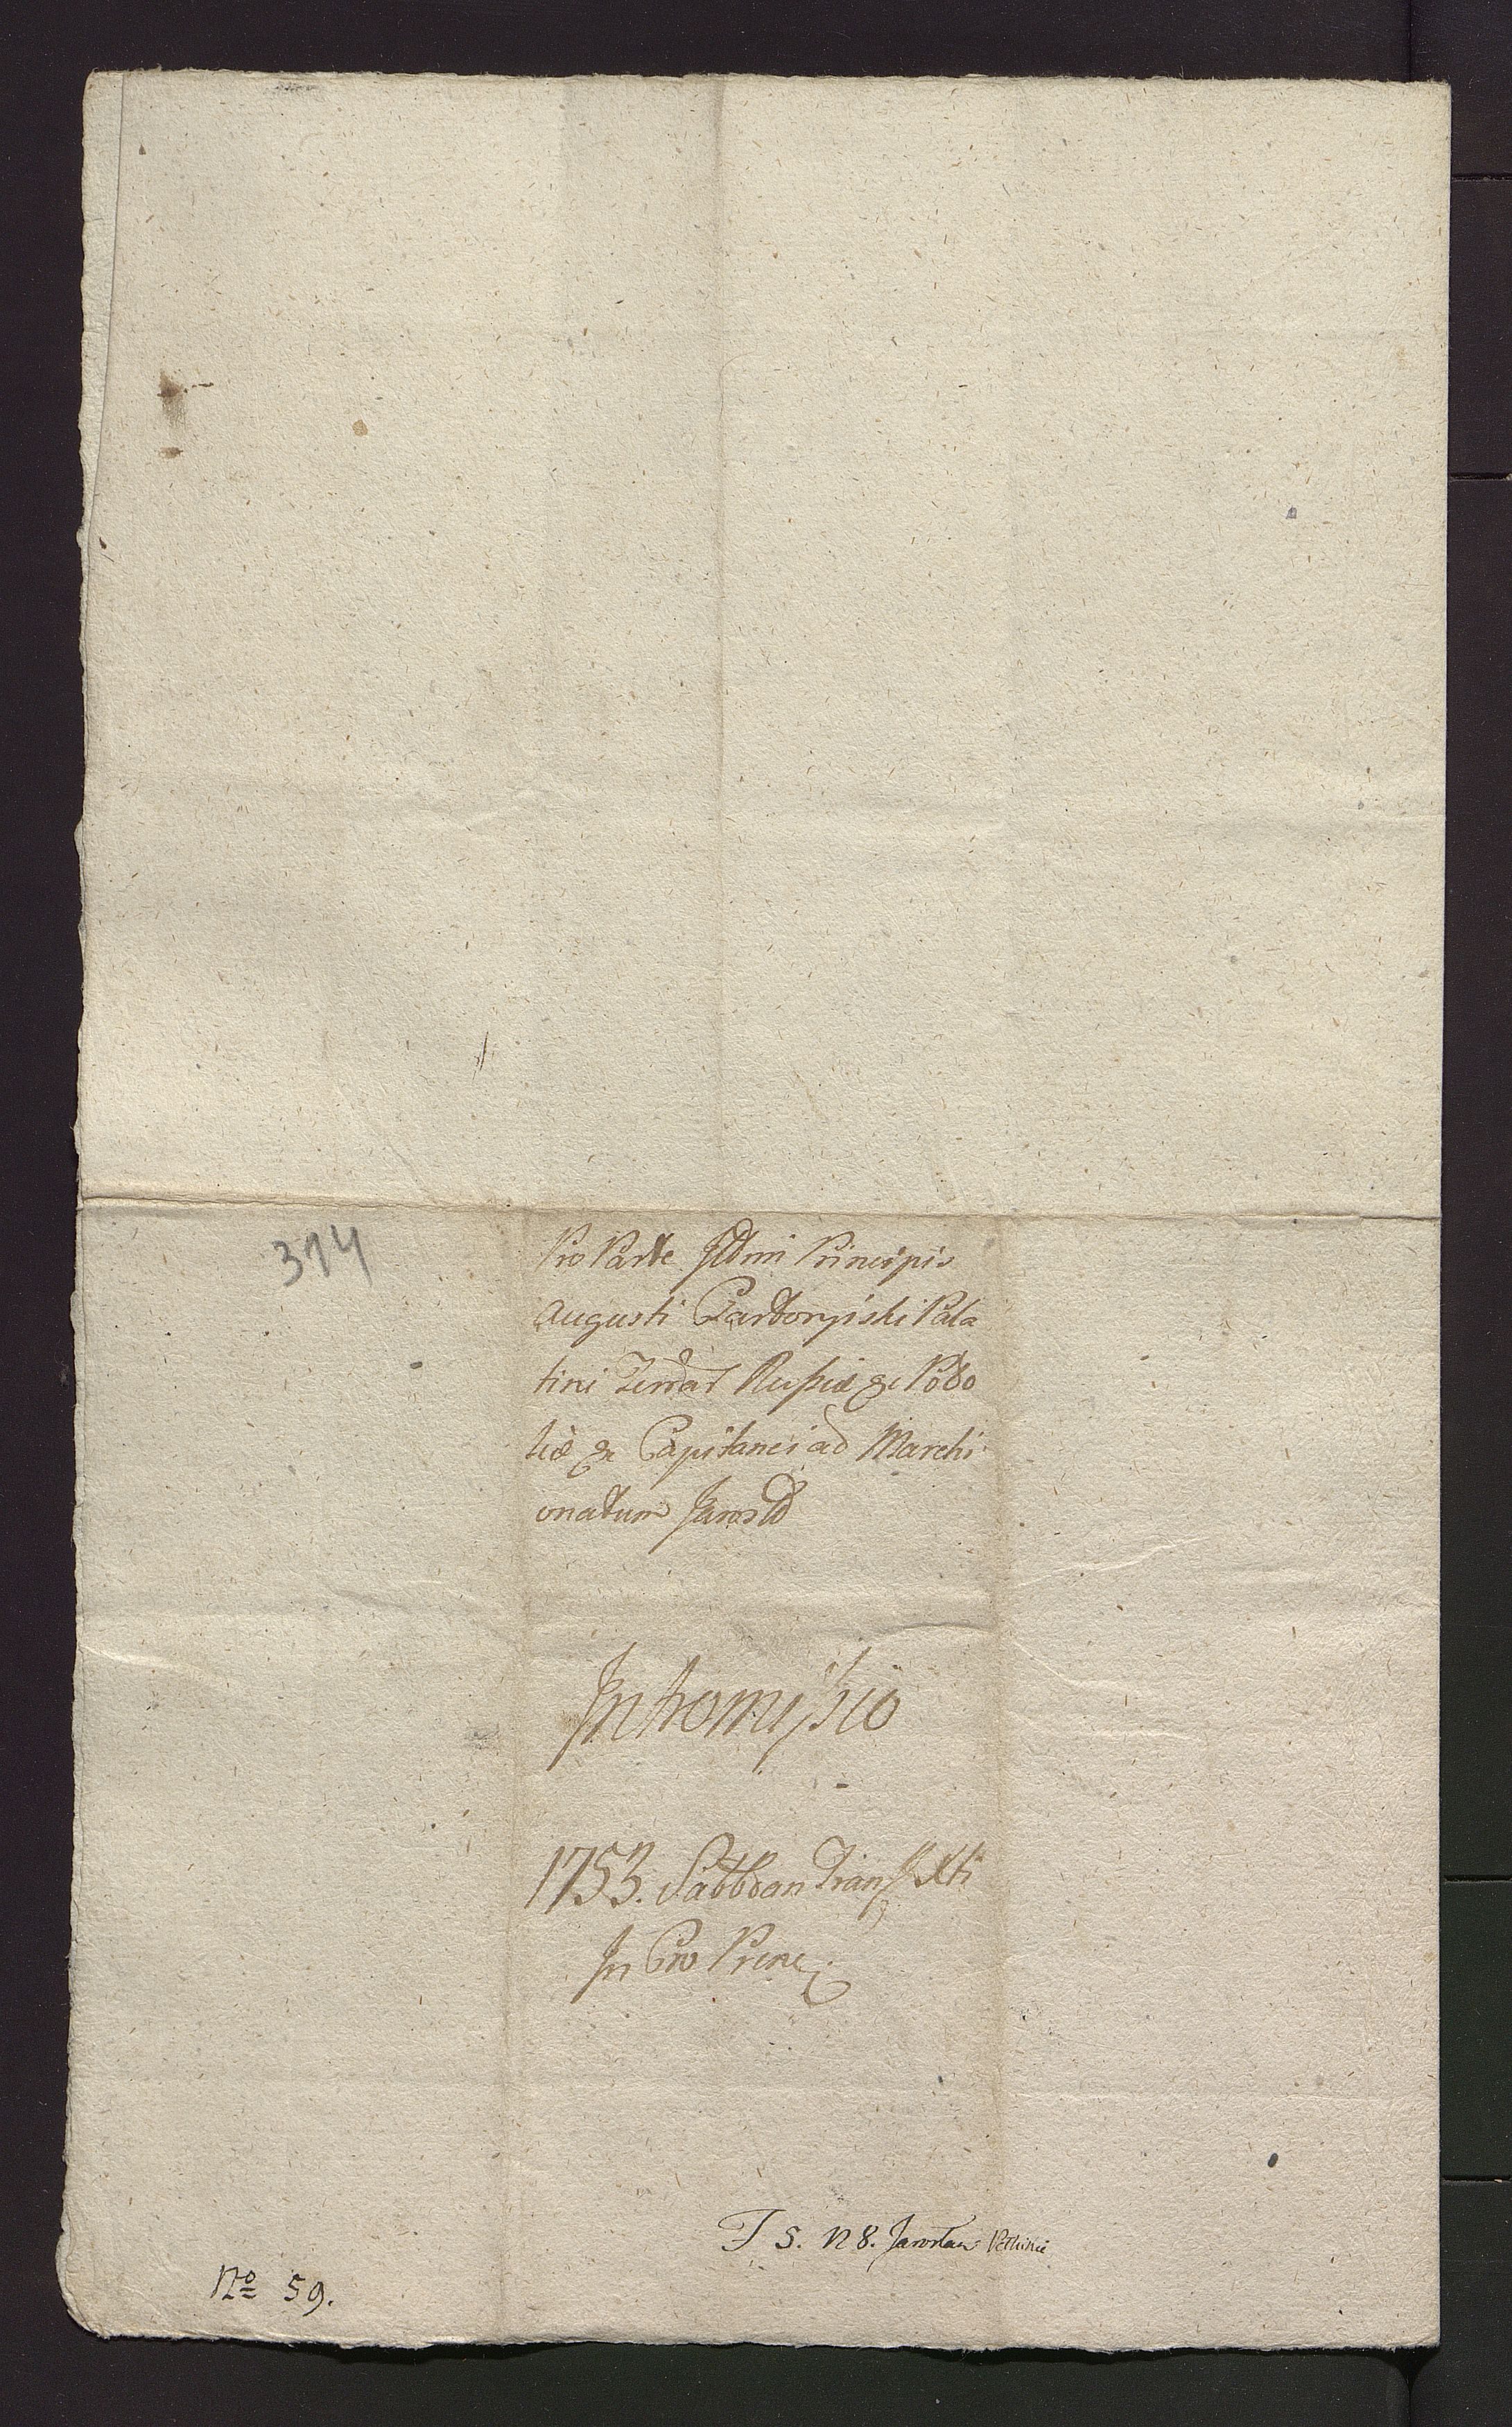 314
Pro Parte Illmi Principis
Augusti Czartoryiski Pala
tini Terrar Russiæ Gē Podo
liæ Gē Capitanei ad Marchi
onatum Jarosł
Intromissio
1753. Sabbõ an Trans Xti
In Cro Prem
F 5. N 8. Jarosław
No 59.